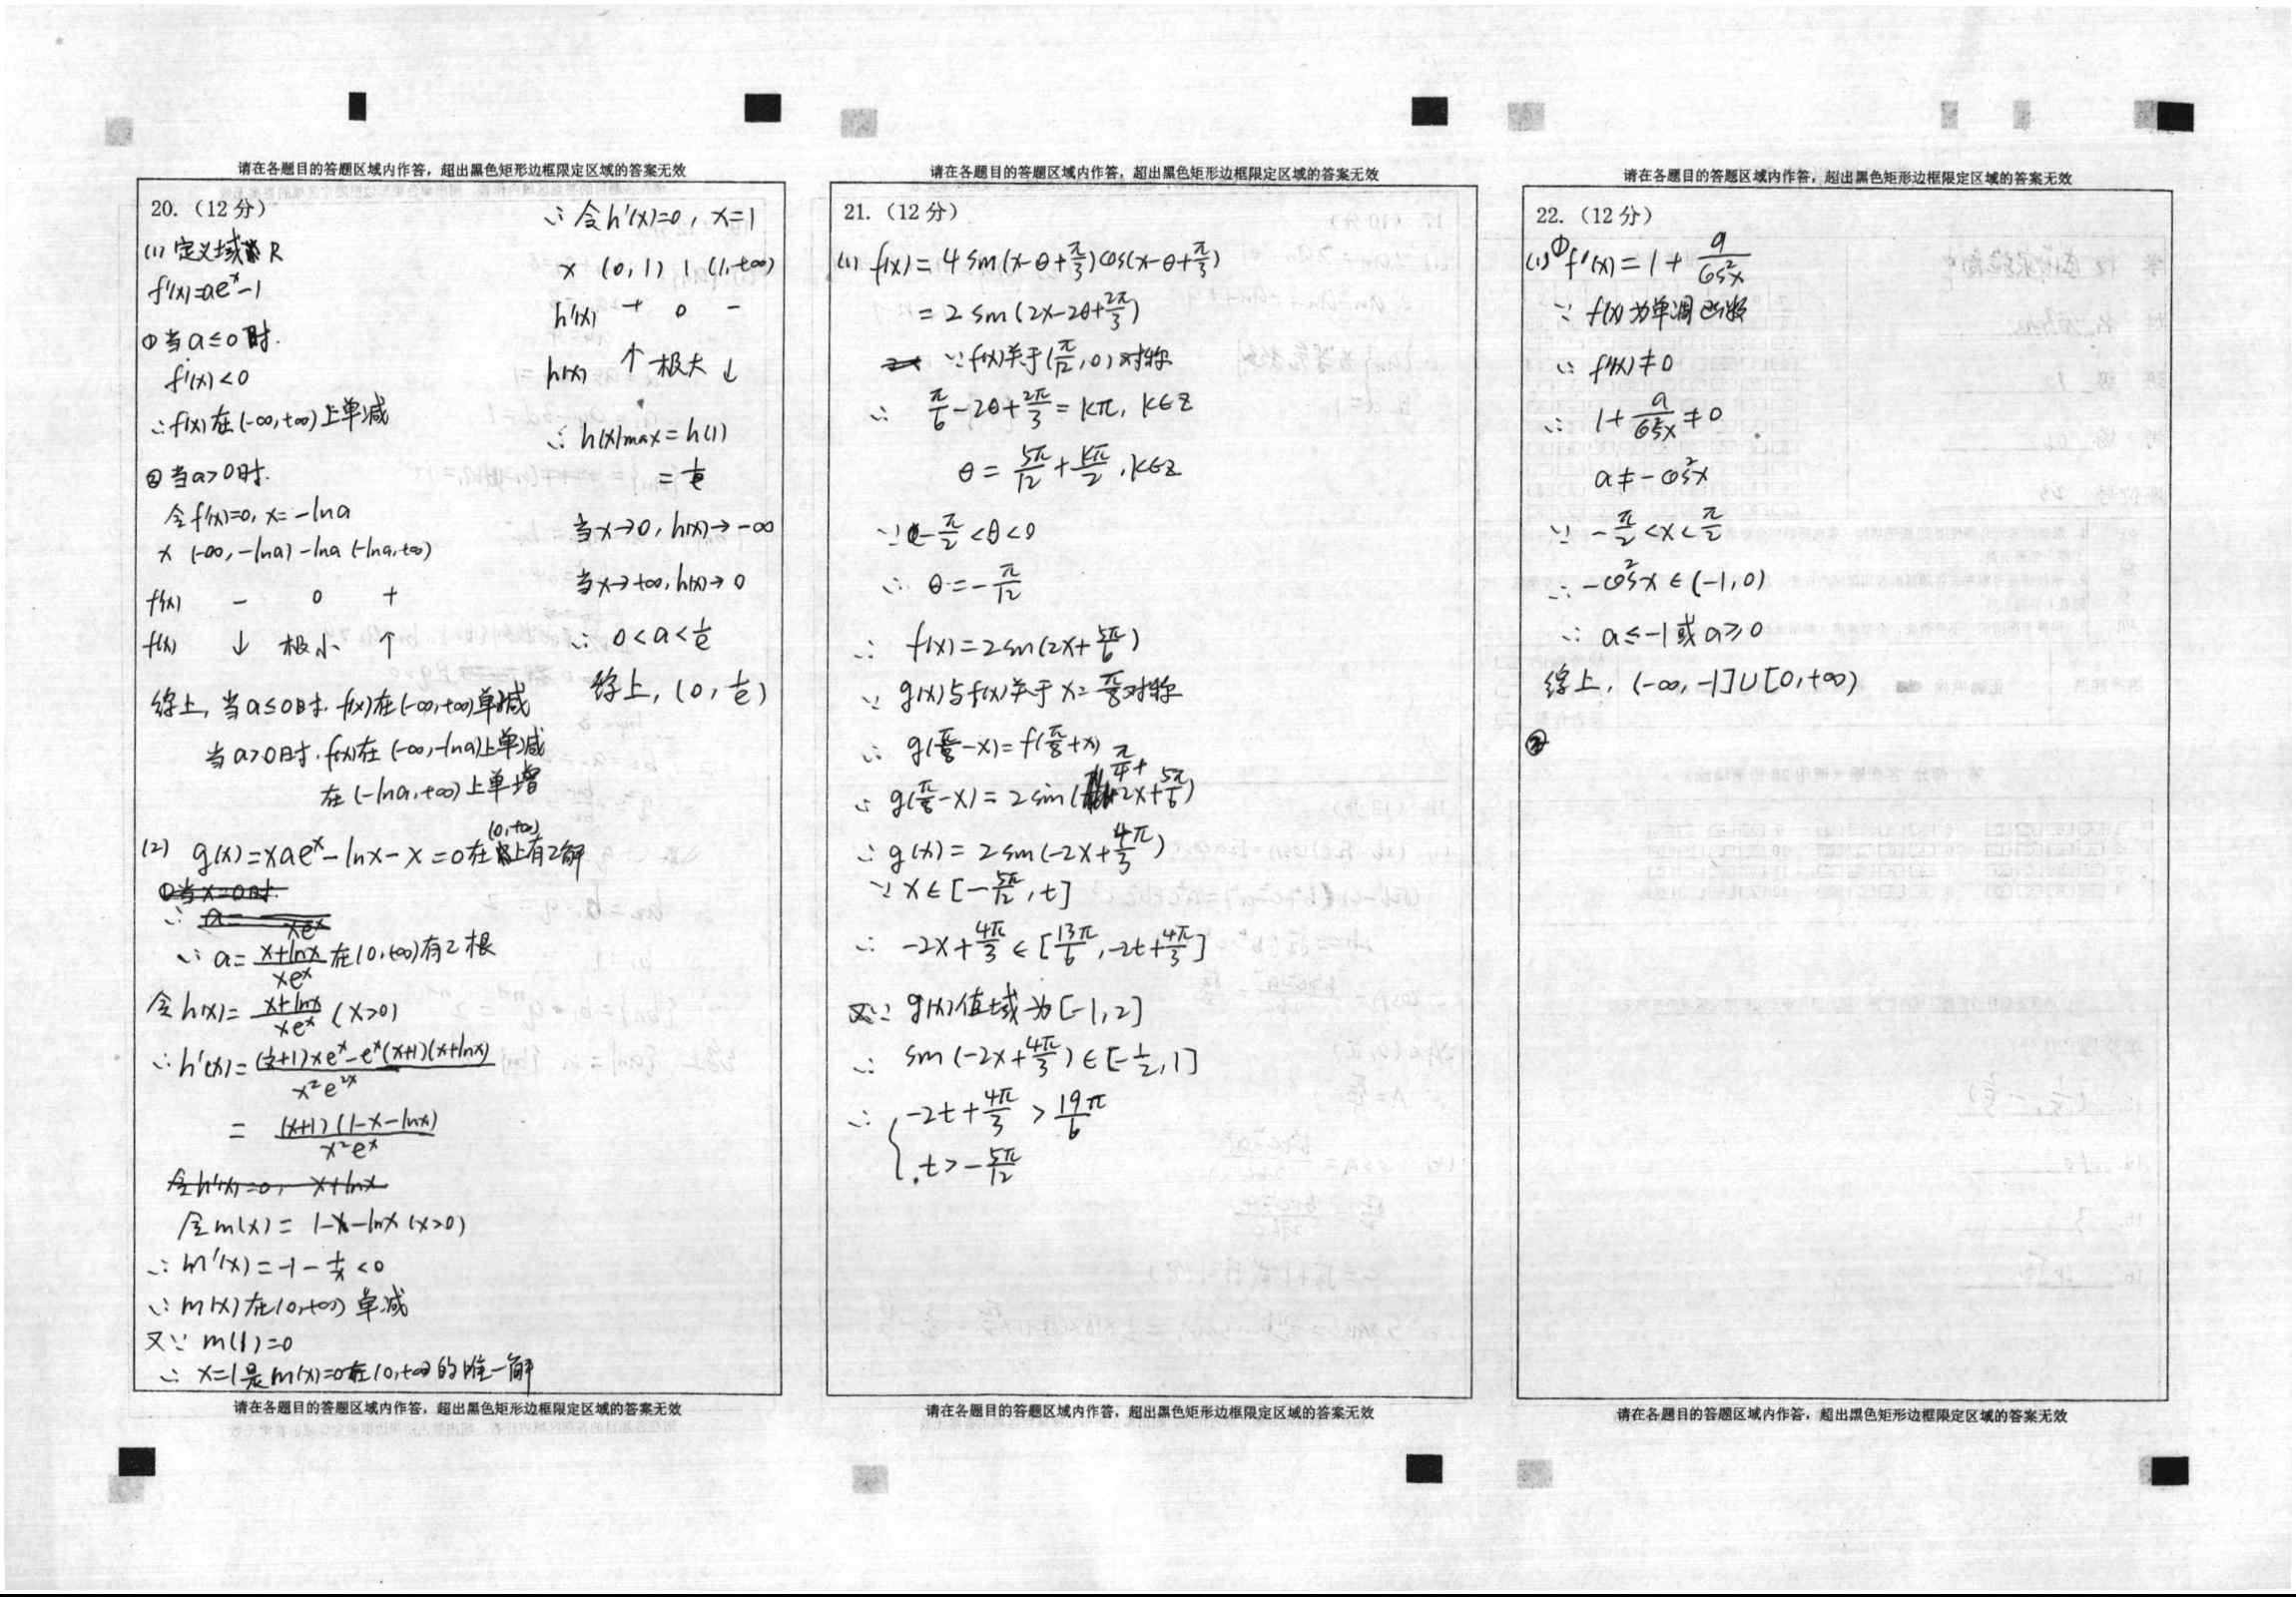 请在各题目的答题区域内作答，超出黑色矩形边框限定区域的答案无效
20.（12分）
(1) 定义域 R
f'(x)=ae^x-1
①当a≤0时.
f'(x)<0
∴f(x)在(-∞,+∞)上单减
②当a>0时.
令f'(x)=0, x=-lna
x (-∞,-lna) -lna (-lna,+∞)
f'(x) - 0 +
f(x) ↓ 极小 ↑
综上, 当a≤0时. f(x)在(-∞,+∞)单减
当a>0时. f(x)在(-∞,-lna)上单减
在(-lna,+∞)上单增
(2) g(x)=xae^x-lnx-x=0在(0,+∞)上有2解
①当x=0时.
∴ a= /xe^x
∴ a=(x+lnx)/(xe^x) 在(0,+∞)有2根
令h(x)=(x+lnx)/(xe^x) (x>0)
∴h'(x)=((1/x+1)xe^x-e^x(x+1)(x+lnx))/(x²e^{2x})
=((x+1)(1-x-lnx))/(x²e^x)
令h'(x)=0, x+lnx
令m(x)=1-x-lnx (x>0)
∴m'(x)=-1-1/x<0
∴m(x)在(0,+∞)单减
又∵ m(1)=0
∴ x=1是m(x)=0在(0,+∞)的唯一解
∴令h'(x)=0, x=1
x (0,1) 1 (1,+∞)
h'(x) + 0 -
h(x) ↑ 极大 ↓
∴h(x)max=h(1)
=1/e
当x→0, h(x)→-∞
当x→+∞, h(x)→0
∴ 0<a<1/e
综上, (0, 1/e)
请在各题目的答题区域内作答，超出黑色矩形边框限定区域的答案无效
请在各题目的答题区域内作答，超出黑色矩形边框限定区域的答案无效
21.（12分）
(1) f(x)=4sin(x-θ+π/3)cos(x-θ+π/3)
=2sin(2x-2θ+2π/3)
∵f(x)关于(π/12,0)对称
∴ π/6-2θ+2π/3=kπ, k∈Z
θ=5π/12+kπ/2, k∈Z
∵-π/2<θ<0
∴ θ=-π/12
∴ f(x)=2sin(2x+5π/6)
∵ g(x)与f(x)关于x=π/8对称
∴ g(π/8-x)=f(π/8+x)
∴ g(π/8-x)=2sin(π/4+2x+5π/6)
∴ g(x)=2sin(-2x+4π/3)
∵ x∈[-5π/12,t]
∴ -2x+4π/3∈[13π/6,-2t+4π/3]
又∵ g(x)值域为[-1,2]
∴ sin(-2x+4π/3)∈[-1/2,1]
∴ { -2t+4π/3>19π/6
t>-5π/12
请在各题目的答题区域内作答，超出黑色矩形边框限定区域的答案无效
请在各题目的答题区域内作答，超出黑色矩形边框限定区域的答案无效
22.（12分）
(1)①f'(x)=1+a/cos²x
∵ f(x)为单调函数
∴ f'(x)≠0
∴ 1+a/cos²x≠0
a≠-cos²x
∵ -π/2<x<π/2
∴ -cos²x∈(-1,0)
∴ a≤-1或a≥0
综上, (-∞,-1]∪[0,+∞)
②
请在各题目的答题区域内作答，超出黑色矩形边框限定区域的答案无效